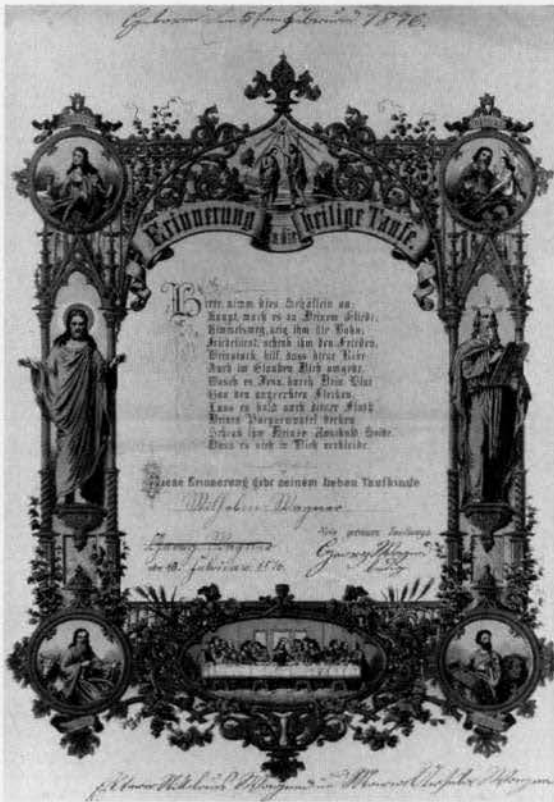 Geboren den 5ten Februar 1876.
Erinnerung an die heilige Taufe.
Hirte, nimm dies Schäflein an;
Haupt, mach es zu Deinem Gliede;
Himmelsweg, zeig ihm die Bahn;
Friedefürst, schenk ihm den Frieden;
Weinstock, hilf, dass diese Rebe
Auch im Glauben Dich umgebe.
Wasch es, Jesu, durch Dein Blut
Von den angeerbten Flecken;
Lass es bald nach dieser Fluth
Deinen Purpurmantel decken;
Schenk ihm Deiner Unschuld Seide,
Dass es sich in Dich verkleide.
Diese Erinnerung gebt seinem lieben Taufkinde
Wilhelm Wagner
Georg Wagner
Georg Wagner
Februar
Eltern Nikolaus Wagner u Maria Wagner